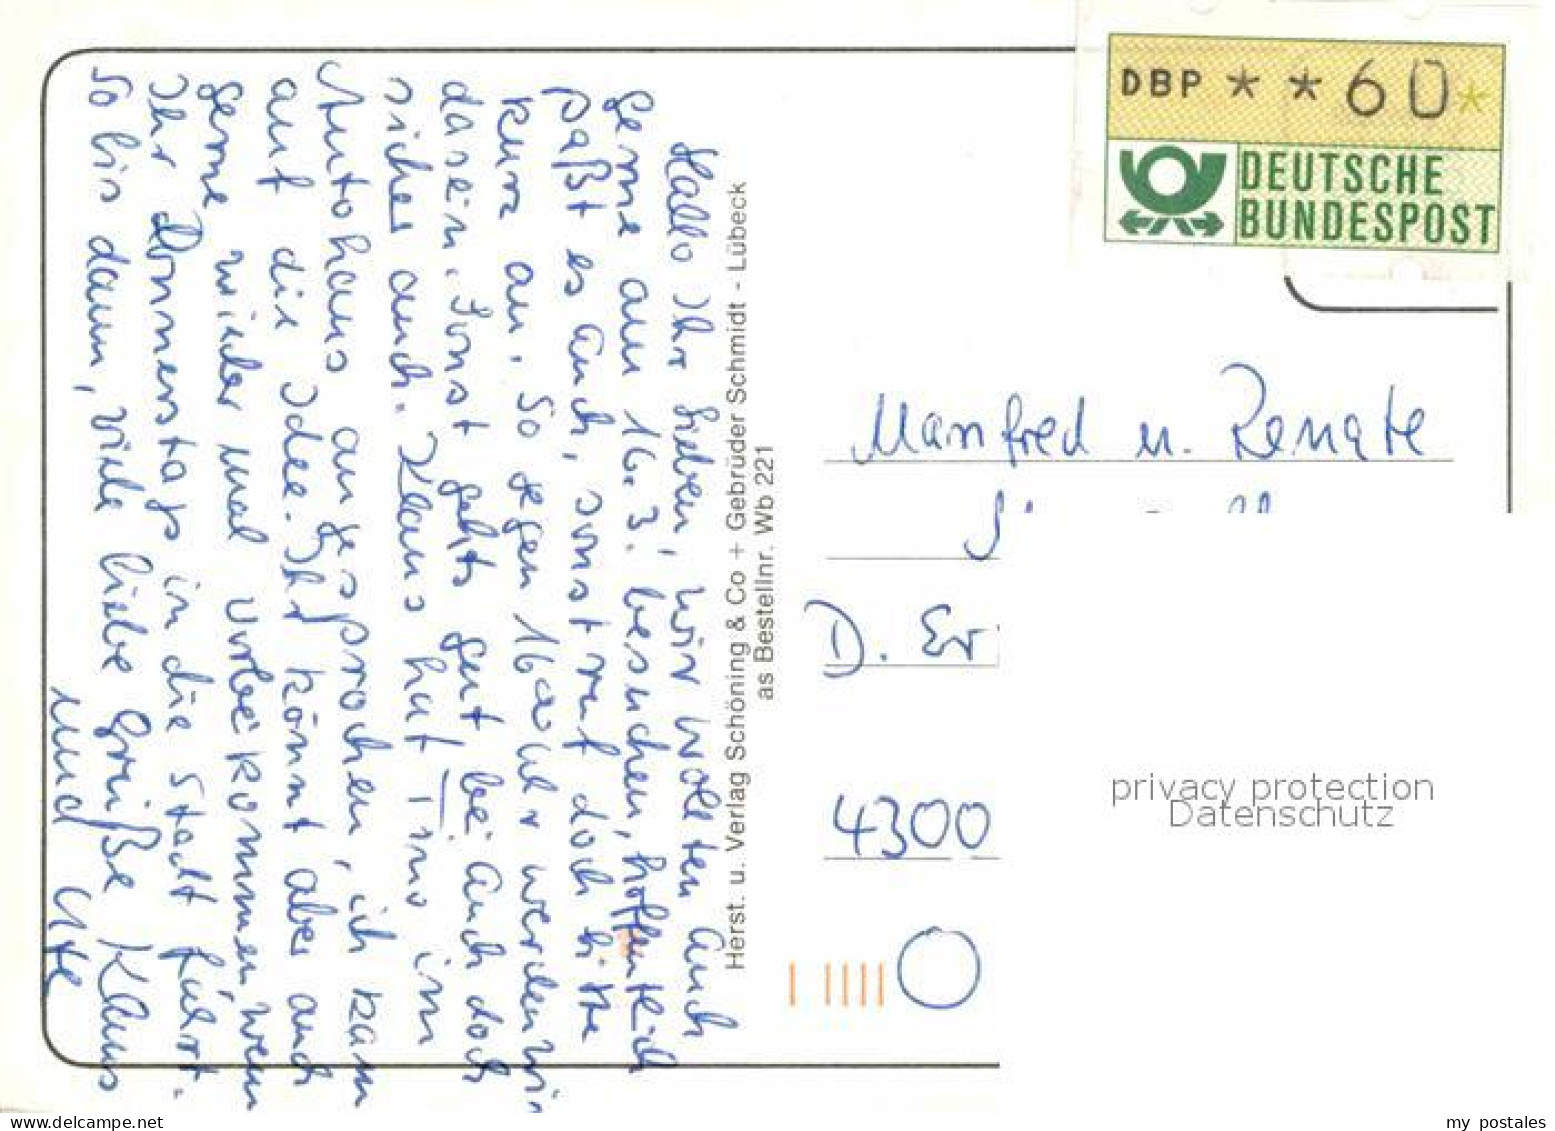 Hallo Ihr Lieben, wir wollten Euch
gerne am 16.3. besuchen, hoffentlich
paßt es Euch, sonst ruft doch bitte
kurz an. So gegen 16 Uhr werden wir
da sein. Sonst gehts gut, bei Euch doch
sicher auch. Klaus hat Timo im
Autohaus angesprochen, ich kam
auf die Idee. Ihr könnt aber auch
gerne wieder mal vorbeikommen, wenn
Ihr Donnerstags in die Stadt fahrt.
So bis dann, viele liebe Grüße Klaus
und Ute
Herst. u. Verlag Schöning & Co + Gebrüder Schmidt - Lübeck
as Bestellnr. Wb 221
DBP **60*
DEUTSCHE
BUNDESPOST
Manfred u. Renate
D. Er
4300
privacy protection
Datenschutz
my postales